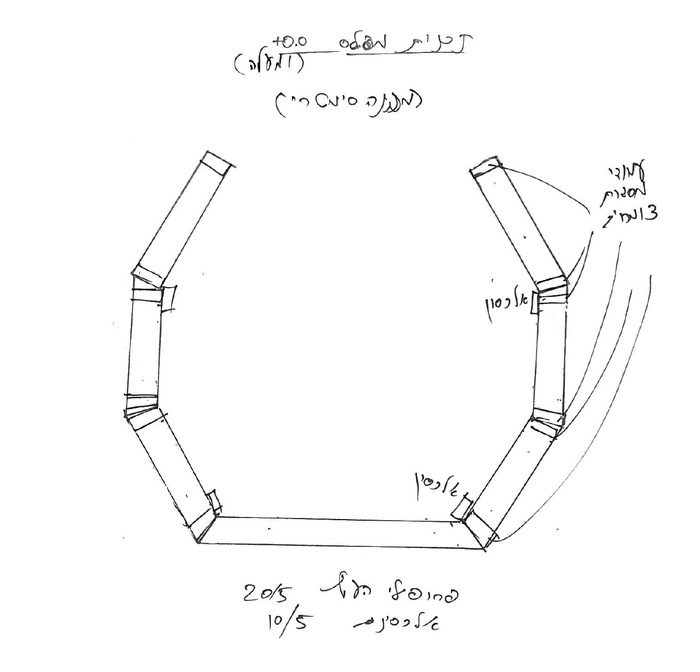 תכנית מפלס +0.0
(ומעלה)
(מבנה סימטרי)
עמודי
מסגרת
צומחת
אלכסון
אלכסון
פרופילי העץ 20/5
אלכסונים 10/5